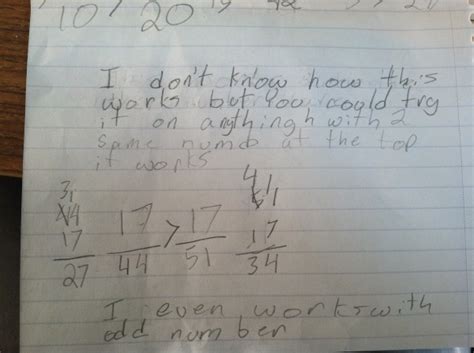 10 / 20
I don't know how this
works but you could try
it on anythingh with 2
same numb at the top
it works
31 41
44 51
17 17 > 17 17
27 44 51 34
I even works with
odd number